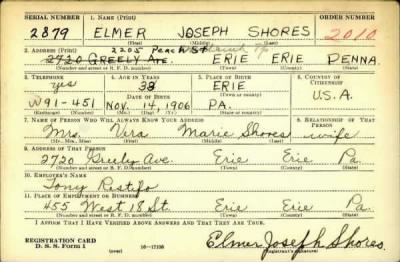 SERIAL NUMBER 1. NAME (Print) ORDER NUMBER
2879 ELMER JOSEPH SHORES 2010
(First) (Middle) (Last)
2205 Peach St
2. ADDRESS (Print)
2720 GREELY AVE. ERIE ERIE PENNA.
(Number and street or R. F. D. number) (Town) (County) (State)
3. TELEPHONE 4. AGE IN YEARS 5. PLACE OF BIRTH 6. COUNTRY OF CITIZENSHIP
yes 33 ERIE
DATE OF BIRTH (Town or county) U.S.A.
W 91-451 NOV. 14, 1906 PA.
(Exchange) (Number) (Mo.) (Day) (Yr.) (State or country)
7. NAME OF PERSON WHO WILL ALWAYS KNOW YOUR ADDRESS 8. RELATIONSHIP OF THAT PERSON
Mrs. Vera Marie Shores wife
(Mr., Mrs., Miss) (First) (Middle) (Last)
9. ADDRESS OF THAT PERSON
2720 Greeley Ave. Erie Erie Pa.
(Number and street or R. F. D. number) (Town) (County) (State)
10. EMPLOYER'S NAME
Tony Restifo
11. PLACE OF EMPLOYMENT OR BUSINESS
455 West 18 St. Erie Erie Pa.
(Number and street or R. F. D. number) (Town) (County) (State)
I AFFIRM THAT I HAVE VERIFIED ABOVE ANSWERS AND THAT THEY ARE TRUE.
REGISTRATION CARD
D. S. S. Form 1 (over) 16—17105 Elmer Joseph Shores.
(Registrant's signature)